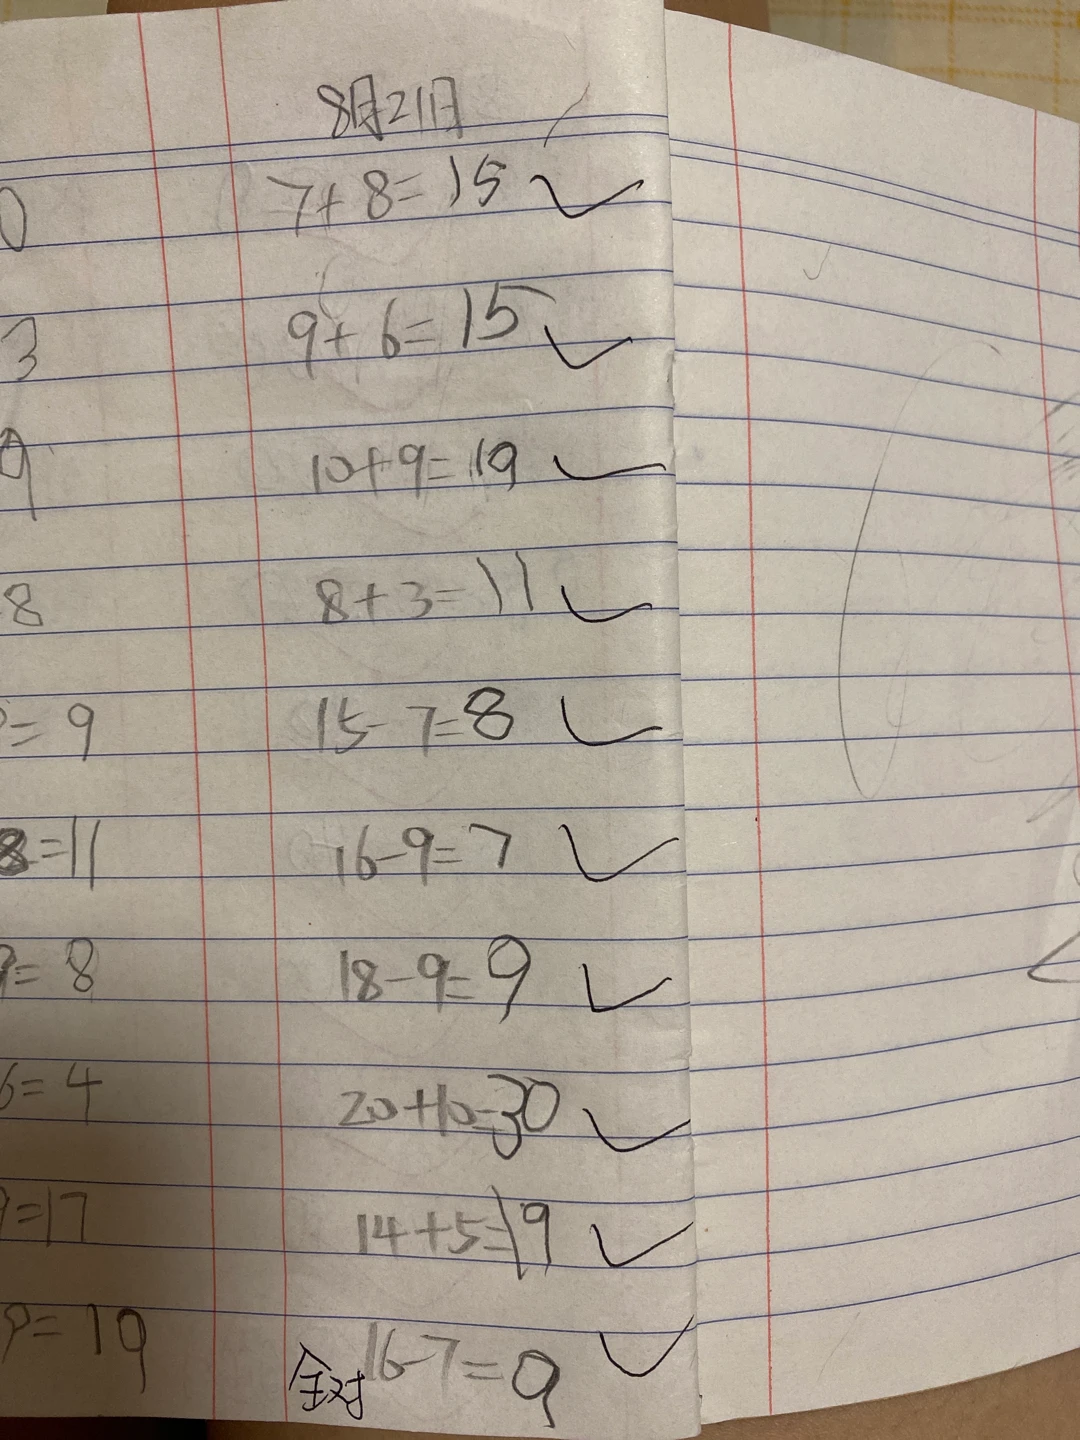 8月21日
0
7+8=15
3
9+6=15
9
10+9=19
8
8+3=11
=9
15-7=8
8=11
16-9=7
=8
18-9=9
6=4
20+10=30
=17
14+5=19
9=19
16-7=9
全对